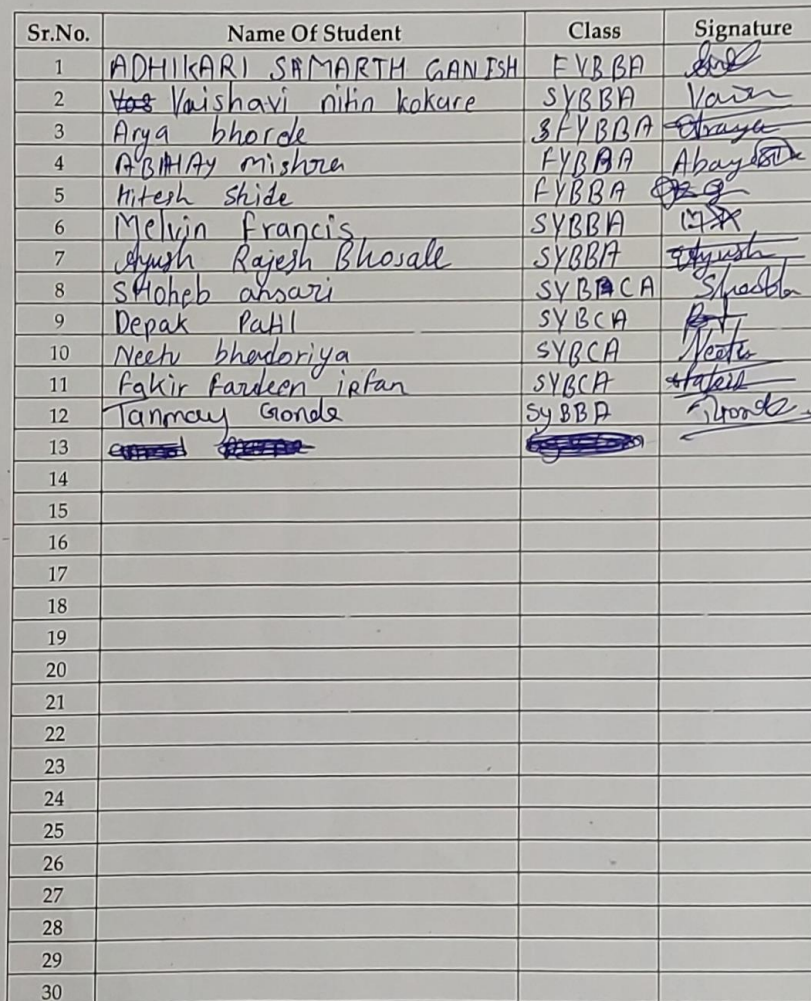 Sr.No. Name Of Student Class Signature
1 ADHIKARI SAMARTH GANISH FYBBA
2 Vaishavi nitin kokare SYBBA
3 Arya bhorde FYBBA
4 ABHAY mishra FYBBA Abay
5 Hitesh Shide FYBBA
6 Melvin Francis SYBBA
7 Ayush Rajesh Bhosale SYBBA Ayush
8 SHoheb ansari SYBCA
9 Depak Patil SYBCA
10 Neetu bhadoriya SYBCA Neetu
11 Fakir Fardeen irfan SYBCA
12 Tanmay Gonde SyBBA
13
14
15
16
17
18
19
20
21
22
23
24
25
26
27
28
29
30